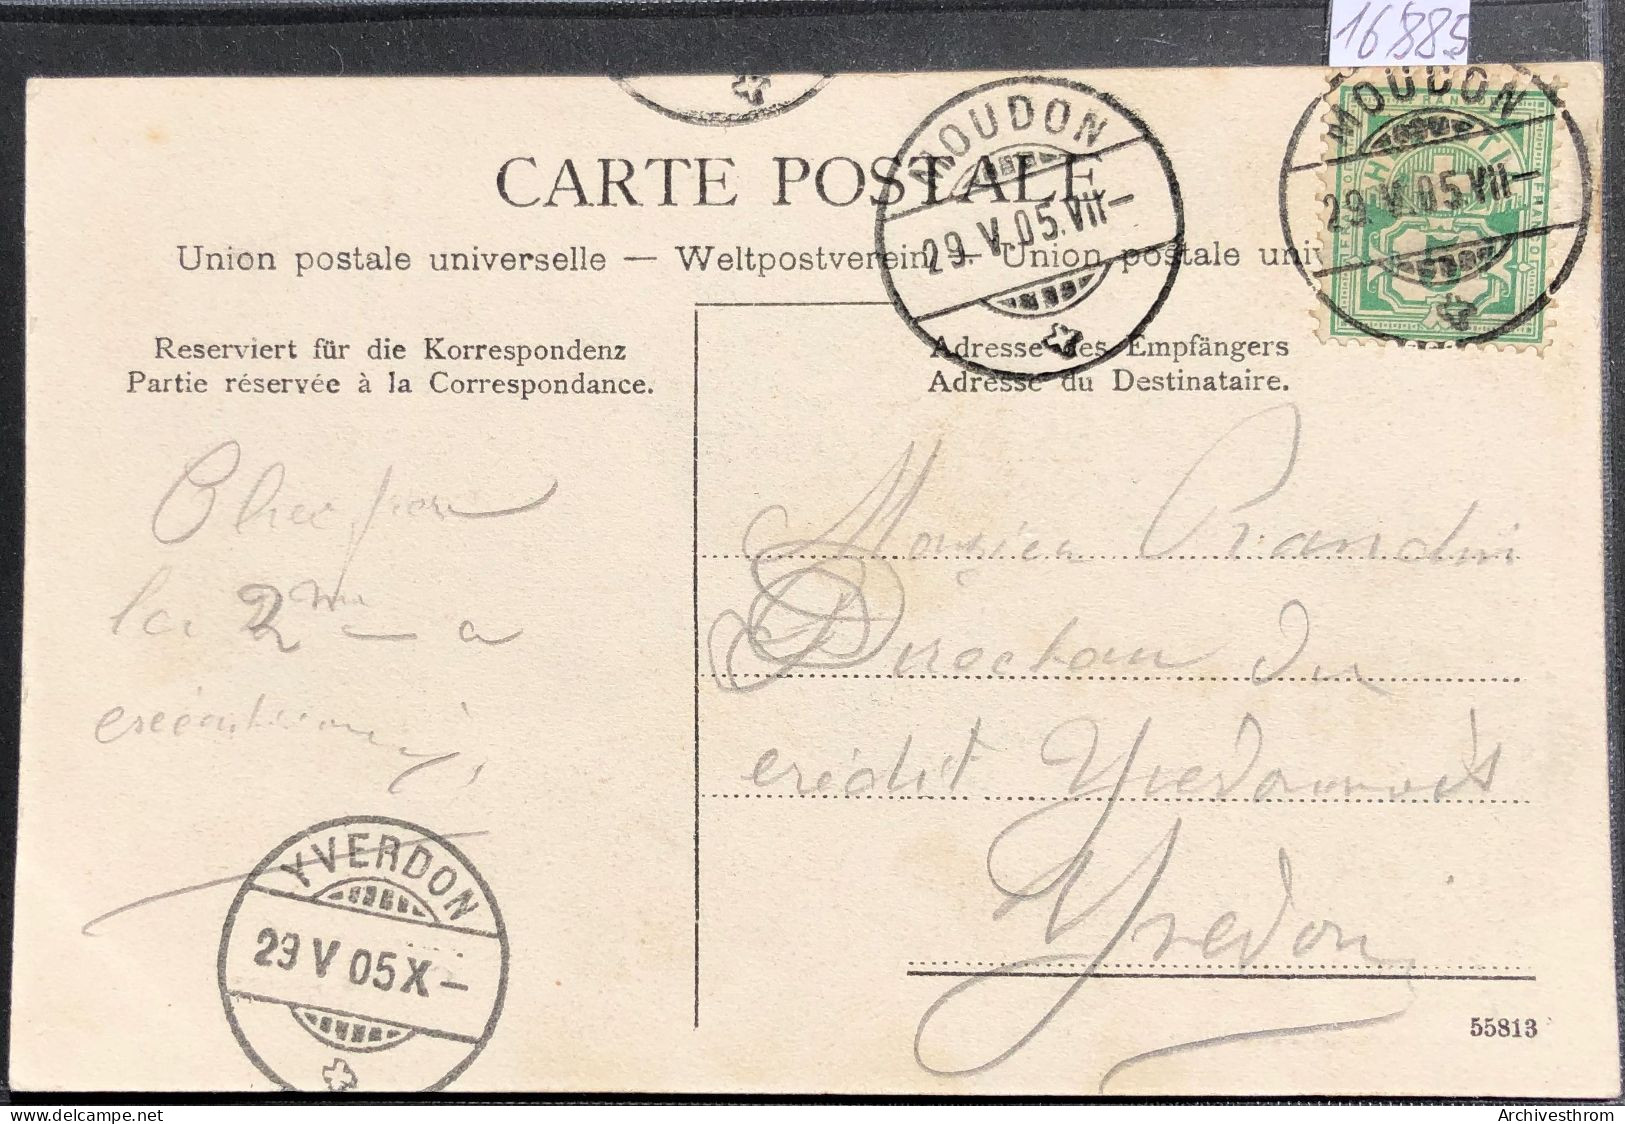 16885
MOUDON
29.V.05.VII–
MOUDON
29.V.05.VII–
CARTE POSTALE
Union postale universelle — Weltpostverein — Union postale uni
Reserviert für die Korrespondenz
Partie réservée à la Correspondance.
Adresse des Empfängers
Adresse du Destinataire.
la 2me – a
Directeur du
crédit Yverdonnois
Yverdon
YVERDON
29 V 05 X –
55813
delcampe.net
Archivesthrom